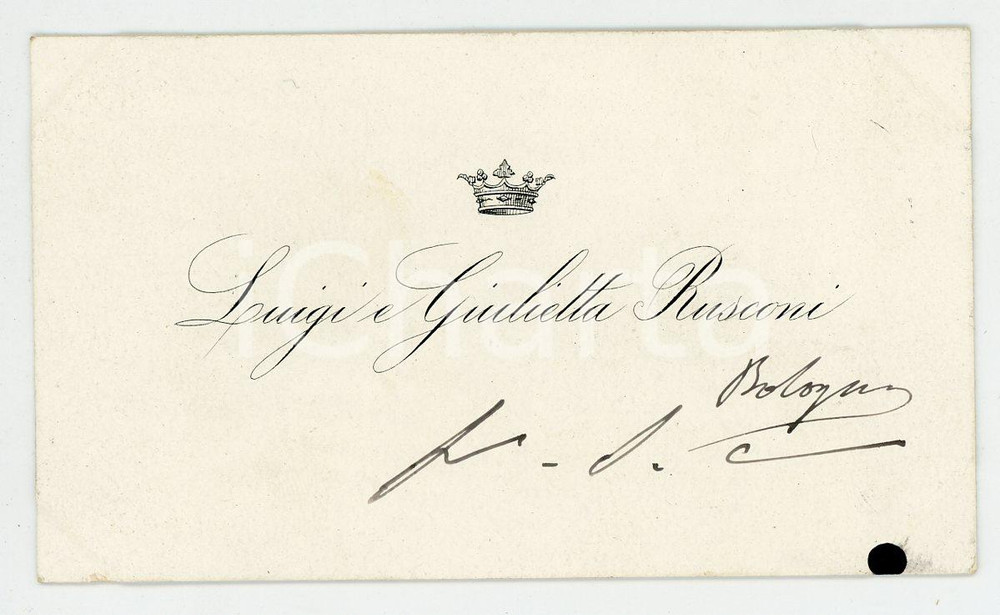 Luigi e Giulietta Rusconi
Bologna
iCharta